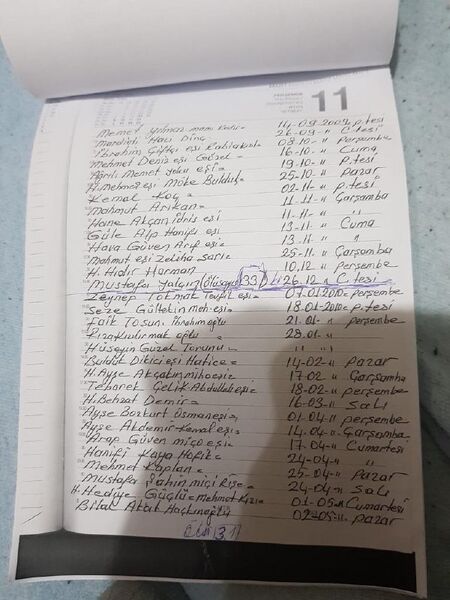 11
Memet Yılmaz 14-09-2009 p.tesi
Mardinli Hacı Dinç 26-09-〃 C.tesi
İbrahim Çiftçi eşi 08.10-〃 perşembe
Mehmet Deniz eşi Güzel= 16-10-〃 Cuma
Ağrılı Memet yoku eşi= 19.10-〃 P.tesi
H.Mehmet eşi Möke Bulduş= 25-10-〃 pazar
Kemal Koç= 02-11-〃 p.tesi
Mahmut Arıkan= 11-11-〃 Çarşamba
Hane Akçan idris eşi 11-11-〃 〃
Güle Alp Hanifi eşi 13-11 〃 Cuma
Hava Güven Arif eşi= 13-11 〃 〃
Mahmut eşi Zeliha sarı= 25-11-〃 Çarşamba
H. Hıdır Harman 10.12 〃 perşembe
Mustafa yalçın (ölüsayısı 33) 26.12 〃 C.tesi
Zeynep Tokmak Tevfik eşi= 07-01 2010= perşembe
Seze Gültekin meh-eşi= 18-01-2010= p.tesi
Faik Tosun İbrahim oğlu 21-01-〃 perşembe
oğlu 〃 〃
Hüseyin Güzel Torunu
Bulduk Dikici eşi Hatice= 14-02-〃 Pazar
H.Ayşe Akçakın 17-02 〃 Çarşamba
Çelik Abdullah eşi= 18-02-〃 perşembe
H.Behzat Demir= 16-03-〃 Salı
Ayşe Bozkurt osman eşi= 01-04-〃 perşembe
Ayşe Akdemir Kemal eşi= 14-04-〃 Çarşamba
Arap Güven miço eşi= 17-04-〃 Cumartesi
Hanifi Kaya Hafik= 24-04-〃 〃
Mehmet Kaplan= 25-04-〃 Pazar
Mustafa Şahin miçi Rışe= 24-04-〃 Salı
H.Hediye Güçlü=mehmet Kızı= 01-05-〃 Cumartesi
Bilal 02-05-〃 pazar
31